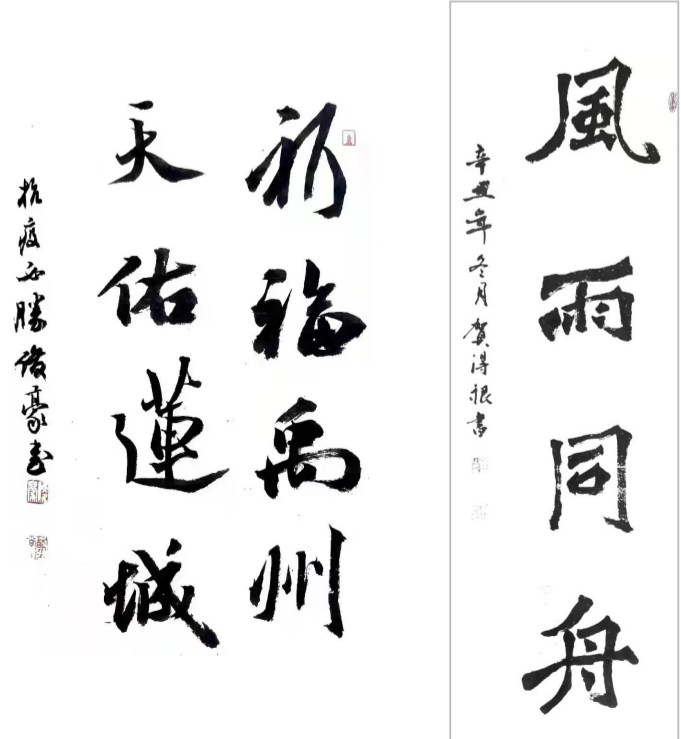 祈福禹州
天佑蓮城
抗疫必勝 俊豪书
風雨同舟
辛丑年冬月賀得根書